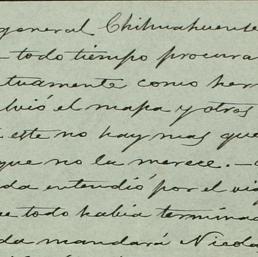 general Chihuahuense
todo tiempo procura
tuamente como her
lvió el mapa y otros
este no hay mas que
que no la merece.—
da entendió por el vi
e todo habia termina
da mandará Nicola